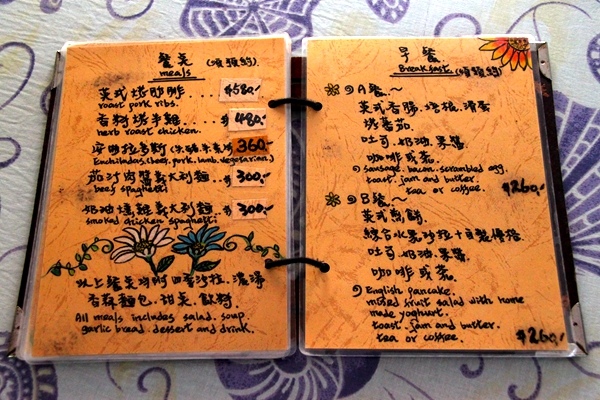 餐點 (須預約)
meals
英式烤肋排.... $580.-
roast pork ribs.
香料烤春雞.... $480.-
herb roast chicken.
360.-
Enchiladas (beef, pork, lamb, vegetarian.)
茄汁肉醬義大利麵.. $300.-
beef spaghetti
奶油燻雞義大利麵.. $300.-
smoked chicken spaghetti
以上餐點均附四季沙拉.濃湯
香蒜麵包.甜點.飲料
All meals includes salad. soup.
garlic bread. dessert and drink.
早餐
Breakfast (須預約)
A餐~
英式香腸.培根.滑蛋
烤蕃茄.
吐司.奶油.果醬
咖啡或茶.
sausage. bacon. scrambled egg
toast. jam and butter.
tea or coffee. $260.-
B餐~
英式煎餅.
綜合水果沙拉+自製優格.
吐司.奶油.果醬.
咖啡或茶.
English pancake.
mixed fruit salad with home
made yoghurt.
toast. jam and butter.
tea or coffee. $260.-